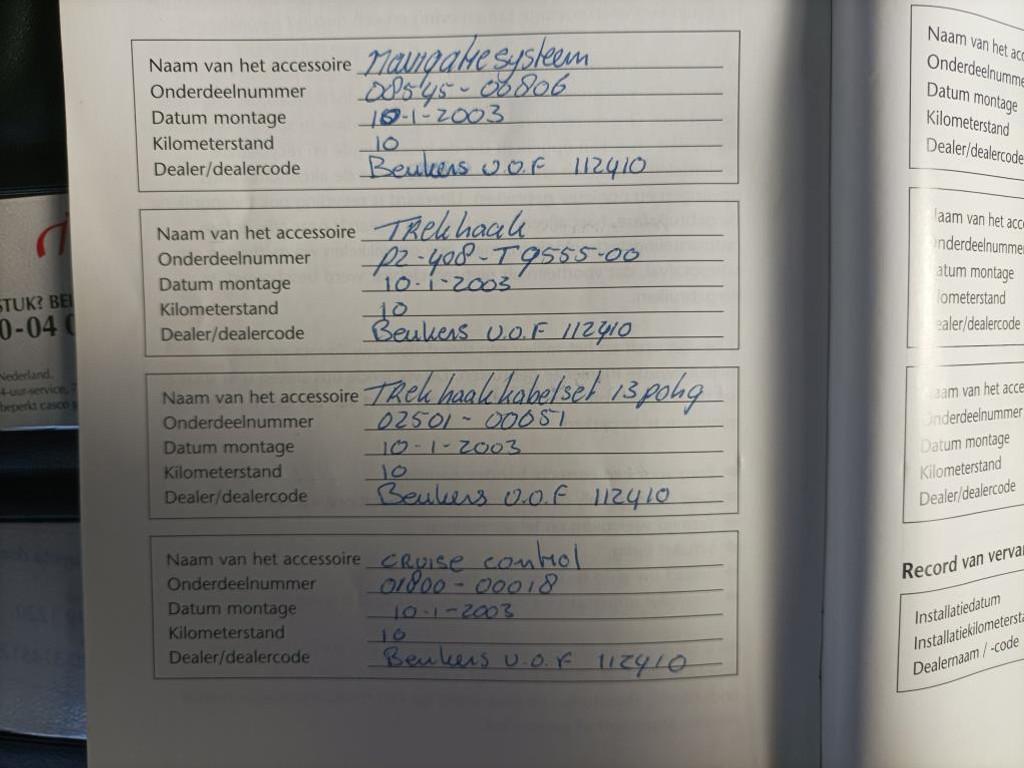 Naam van het accessoire Navigatiesysteem
Onderdeelnummer 08545-00806
Datum montage 10-1-2003
Kilometerstand 10
Dealer/dealercode Beukers v.o.f 112410
Naam van het accessoire TRekhaak
Onderdeelnummer PZ-408-T9555-00
Datum montage 10-1-2003
Kilometerstand 10
Dealer/dealercode Beukers v.o.f 112410
Naam van het accessoire TRekhaakkabelset 13 polig
Onderdeelnummer 02501-00051
Datum montage 10-1-2003
Kilometerstand 10
Dealer/dealercode Beukers v.o.f 112410
Naam van het accessoire CRuise control
Onderdeelnummer 01800-00018
Datum montage 10-1-2003
Kilometerstand 10
Dealer/dealercode Beukers v.o.f 112410
STUK? BE
0-04
Nederland.
4-uur-service,
beperkt casco
Naam van het acc
Onderdeelnumme
Datum montage
Kilometerstand
Dealer/dealercode
aam van het acce
nderdeelnumme
atum montage
lometerstand
ealer/dealercode
aam van het acce
nderdeelnummer
Datum montage
Kilometerstand
Dealer/dealercode
Record van verva
Installatiedatum
Installatiekilometersta
Dealernaam / -code